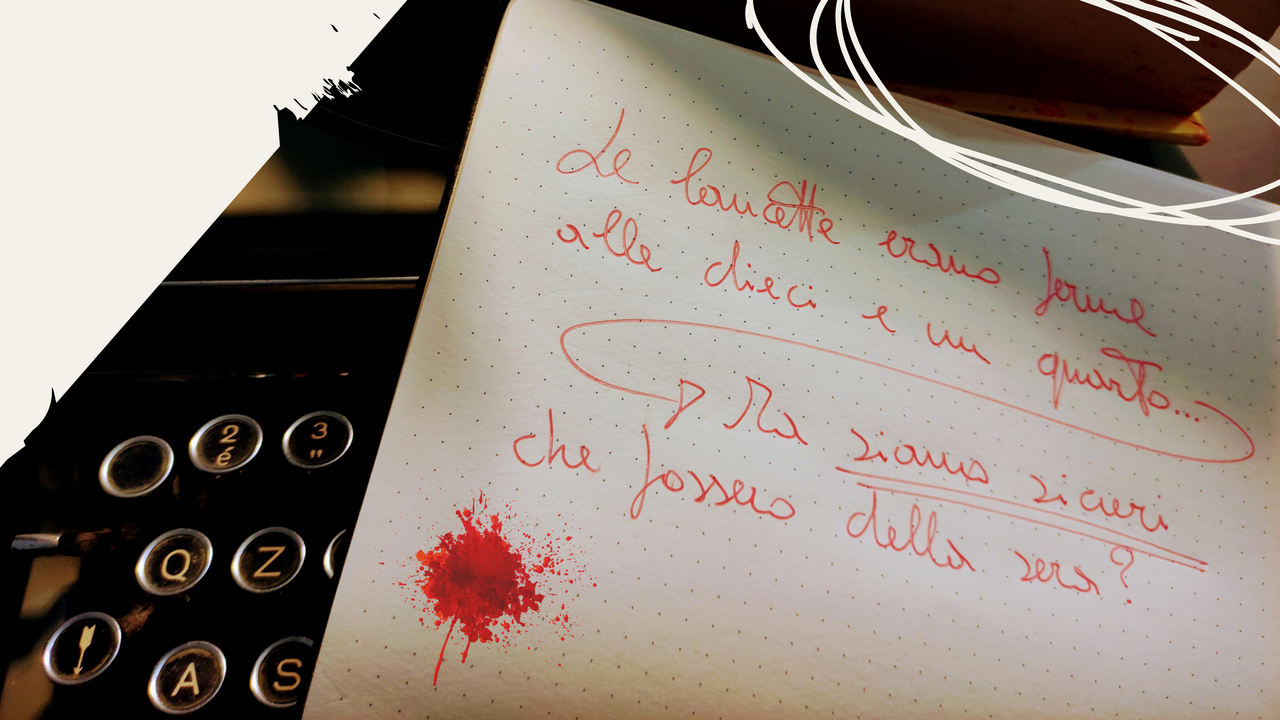 Le lancette erano ferme
alle dieci e un quarto...
Ma siamo sicuri
che fossero della sera?
2 3
é "
Q Z
A S